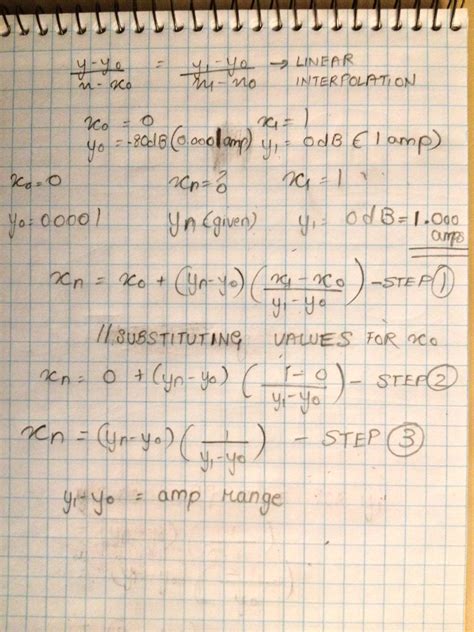 y-y₀/x-x₀ = y₁-y₀/x₁-x₀ → LINEAR INTERPOLATION
x₀ = 0 x₁ = 1
y₀ = -80dB (0.0001amp) y₁ = 0dB (1 amp)
x₀ = 0 xn = ? x₁ = 1
y₀ = 0.0001 yn (given) y₁ = 0dB = 1.000 amps
xn = x₀ + (yn-y₀) (x₁-x₀/y₁-y₀) - STEP ①
// SUBSTITUTING VALUES FOR x₀
xn = 0 + (yn-y₀) (1-0/y₁-y₀) - STEP ②
xn = (yn-y₀) (1/y₁-y₀) - STEP ③
y₁-y₀ = amp range